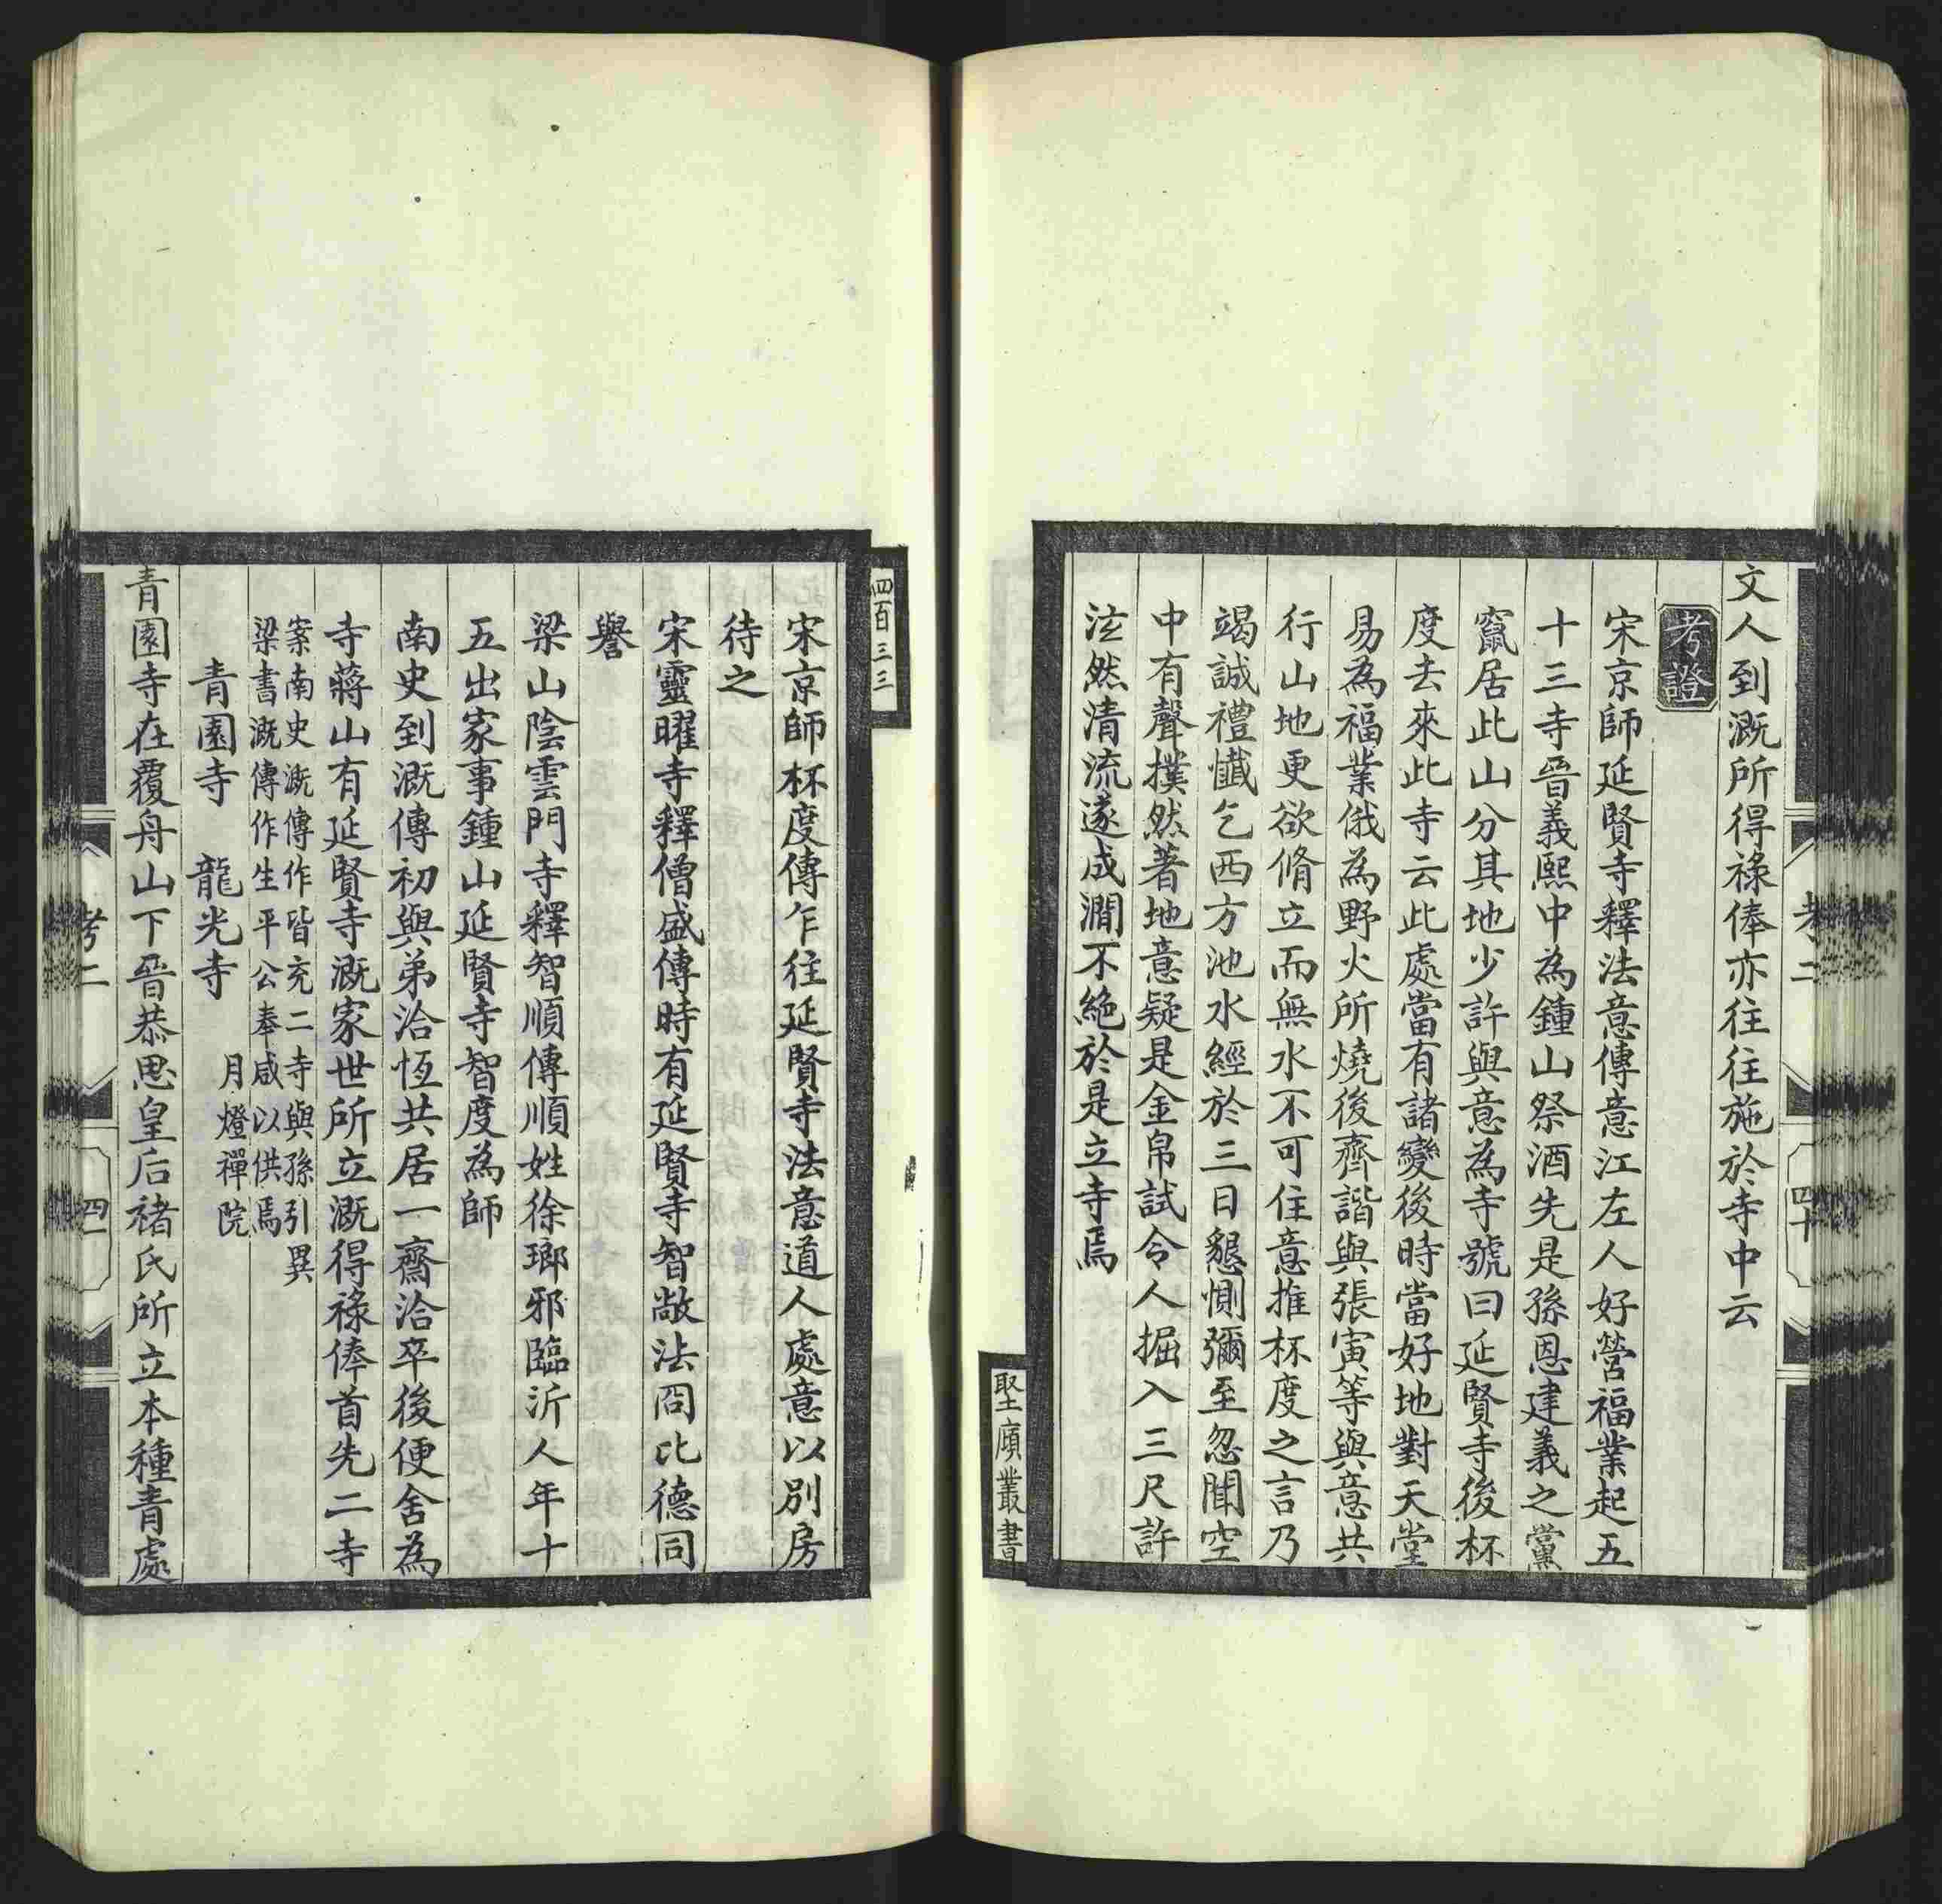 文人到溉所得祿俸亦往往施於寺中云
考證
宋京師延賢寺釋法意傳意江左人好營福業起五
十三寺晉義熙中為鍾山祭酒先是孫恩建義之黨
竄居此山分其地少許與意為寺號曰延賢寺後杯
度去來此寺云此處當有諸變後時當好地對天堂
易為福業俄為野火所燒後齊諧與張寅等與意共
行山地更欲脩立而無水不可住意推杯度之言乃
竭誠禮懺乞西方池水經於三日懇惻彌至忽聞空
中有聲撲然著地意疑是金帛試令人掘入三尺許
泫然清流遂成澗不絕於是立寺焉
考二
四十
堅廎叢書
四百三三
宋京師杯度傳乍往延賢寺法意道人處意以別房
待之
宋靈曜寺釋僧盛傳時有延賢寺智敞法冏比德同
譽
梁山陰雲門寺釋智順傳順姓徐瑯邪臨沂人年十
五出家事鍾山延賢寺智度為師
南史到溉傳初與弟洽恆共居一齋洽卒後便舍為
寺蔣山有延賢寺溉家世所立溉得祿俸首先二寺
案南史溉傳作皆充二寺與孫引異
梁書溉傳作生平公奉咸以供焉
青園寺 龍光寺 月燈禪院
青園寺在覆舟山下晉恭思皇后褚氏所立本種青處
考二
四一